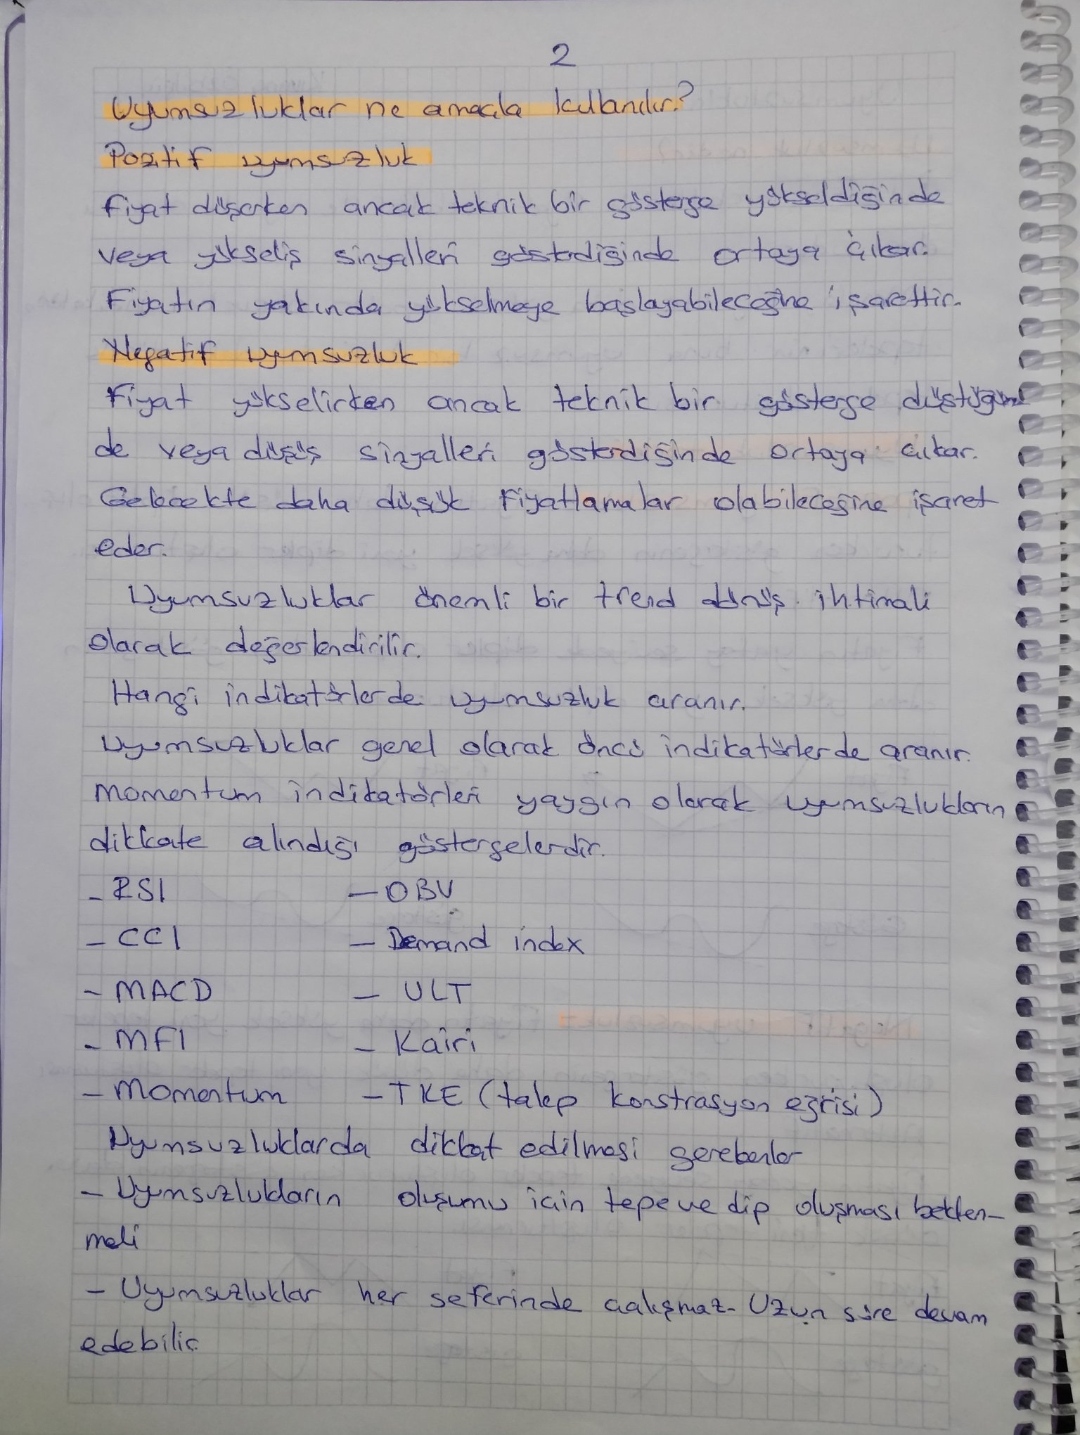 2
Uyumsuzluklar ne amaçla kullanılır?
Pozitif uyumsuzluk
Fiyat düşerken ancak teknik bir gösterge yükseldiğinde
veya yükseliş sinyalleri gösterdiğinde ortaya çıkar.
Fiyatın yakında yükselmeye başlayabileceğine işarettir.
Negatif uyumsuzluk
Fiyat yükselirken ancak teknik bir gösterge düştüğün
de veya düşüş sinyalleri gösterdiğinde ortaya çıkar.
Gelecekte daha düşük fiyatlamalar olabileceğine işaret
eder.
Uyumsuzluklar önemli bir trend dönüş ihtimali
olarak değerlendirilir.
Hangi indikatörlerde uyumsuzluk aranır.
Uyumsuzluklar genel olarak öncü indikatörlerde aranır.
Momentum indikatörleri yaygın olarak uyumsuzlukların
dikkate alındığı göstergelerdir.
- RSI - OBV
- CCI - Demand index
- MACD - ULT
- MFI - Kairi
- Momentum - TKE (talep konstrasyon eğrisi)
Uyumsuzluklarda dikkat edilmesi gerekenler
- Uyumsuzlukların oluşumu için tepe ve dip oluşması beklen-
meli
- Uyumsuzluklar her seferinde çalışmaz. Uzun süre devam
edebilir